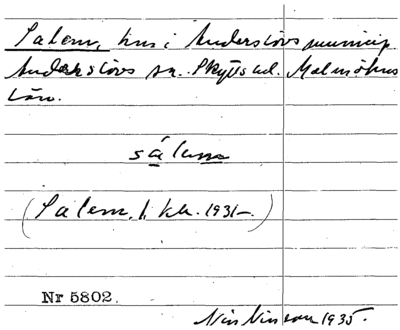 Salem, hus i Anderslövs municip.
Anderslövs sn. Skytts hd. Malmöhus
Län.
sálem
(Salem, J. kb. 1931–)
Nr 5802.
Nils Nilsson 1935.